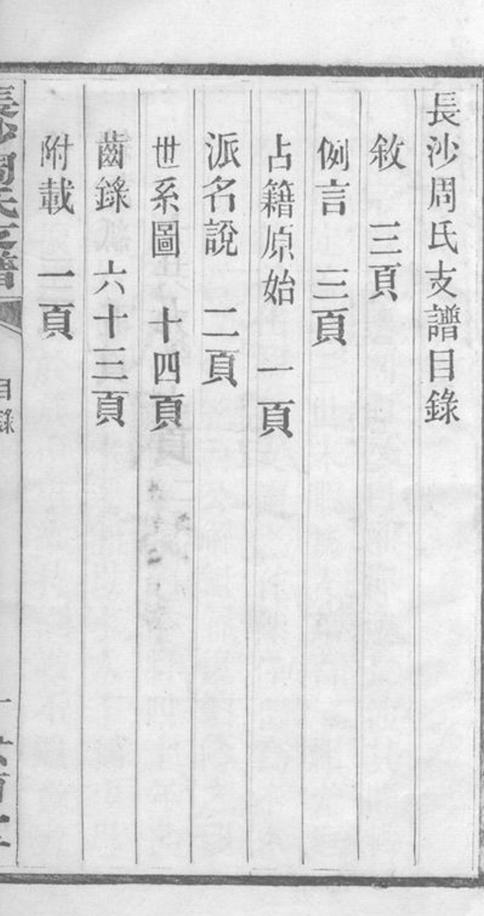 長沙周氏支譜目錄
敘 三頁
例言 三頁
占籍原始 一頁
派名說 二頁
世系圖 十四頁
齒錄 六十三頁
附載 一頁
長沙周氏支譜
目錄
一